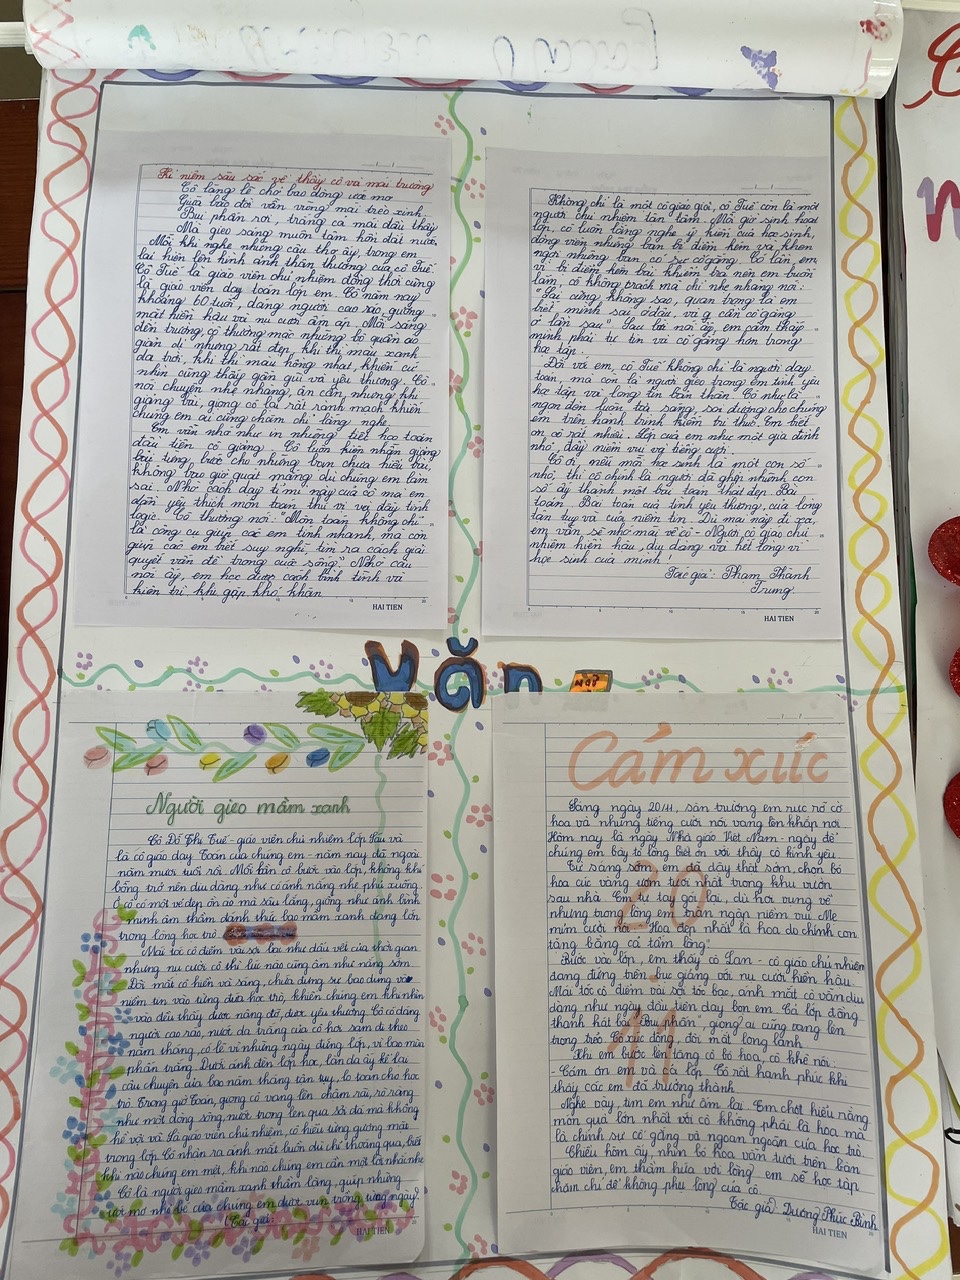 Kỉ niệm sâu sắc về thầy cô và mái trường
Cô lặng lẽ chở bao dòng ước mơ
Giữa bão đời vẫn vững mái trèo xinh
Bụi phấn rơi, trắng cả mái đầu thầy
Mà gieo sáng muôn tâm hồn đất nước.
Mỗi khi nghe những câu thơ ấy, trong em
lại hiện lên hình ảnh thân thương của cô Tuế.
Cô Tuế là giáo viên chủ nhiệm đồng thời cũng
là giáo viên dạy toán lớp em. Cô năm nay
khoảng 50 tuổi, dáng người cao ráo, gương
mặt hiền hậu và nụ cười ấm áp. Mỗi sáng
đến trường, cô thường mặc những bộ quần áo
giản dị nhưng rất đẹp, khi thì màu xanh
da trời, khi thì màu hồng nhạt, khiến cứ
nhìn cũng thấy gần gũi và yêu thương. Cô
nói chuyện nhẹ nhàng, ân cần, nhưng khi
giảng bài, giọng cô lại rất rành mạch khiến
chúng em ai cũng chăm chỉ lắng nghe.
Em vẫn nhớ như in những tiết học toán
đầu tiên cô giảng. Cô luôn kiên nhẫn giảng
bài từng bước cho những bạn chưa hiểu bài,
không bao giờ quát mắng dù chúng em làm
sai. Nhờ cách dạy tỉ mỉ này của cô mà em
dần yêu thích môn toán thú vị và đầy tính
logic. Cô thường nói: "Môn toán không chỉ
là công cụ giúp các em tính nhanh, mà còn
giúp các em biết suy nghĩ, tìm ra cách giải
quyết vấn đề trong cuộc sống". Nhờ câu
nói ấy, em học được cách bình tĩnh và
kiên trì khi gặp khó khăn.
HAI TIEN
Không chỉ là một cô giáo giỏi, cô Tuế còn là một
người chủ nhiệm tận tâm. Mỗi giờ sinh hoạt
lớp, cô luôn lắng nghe ý kiến của học sinh,
động viên những bạn bị điểm kém và khen
ngợi những bạn có sự cố gắng. Có lần, em
vì bị điểm kém bài kiểm tra nên em buồn
lắm, cô không trách mà chỉ nhẹ nhàng nói:
"Sai cũng không sao, quan trọng là em
biết mình sai ở đâu, và cần cố gắng
ở lần sau". Sau lời nói ấy, em cảm thấy
mình phải tự tin và cố gắng hơn trong
học tập.
Đối với em, cô Tuế không chỉ là người dạy
toán, mà còn là người gieo trong em tình yêu
học tập và lòng tin bản thân. Cô như là
ngọn đèn luôn tỏa sáng, soi đường cho chúng
em trên hành trình kiếm tri thức. Em biết
ơn cô rất nhiều. Lớp của em như một gia đình
nhỏ, đầy niềm vui và tiếng cười.
Cô ơi, nếu mỗi học sinh là một con số
nhỏ, thì cô chính là người đã ghép những con
số ấy thành một bài toán thật đẹp. Bài
toán. Bài toán của tình yêu thương, của lòng
tận tụy và của niềm tin. Dù mai này đi xa,
em vẫn sẽ nhớ mãi về cô - Người cô giáo chủ
nhiệm hiền hậu, dịu dàng và hết lòng vì
học sinh của mình!
Tác giả: Phạm Thành
Trung.
HAI TIEN
Văn
Người gieo mầm xanh
Cô Đỗ Thị Tuế - giáo viên chủ nhiệm lớp Sáu và
là cô giáo dạy Toán của chúng em - năm nay đã ngoài
năm mươi tuổi rồi. Mỗi lần cô bước vào lớp, không khí
bỗng trở nên dịu dàng như có ánh nắng nhẹ phủ xuống.
Ở cô có một vẻ đẹp ôn ào mà sâu lắng, giống như ánh bình
minh âm thầm đánh thức bao mầm xanh đang lớn
trong lòng học trò.
Mái tóc cô điểm vài sợi bạc như dấu vết của thời gian
nhưng nụ cười cô thì lúc nào cũng ấm như nắng sớm.
Đôi mắt cô hiền và sáng, chứa đựng sự bao dung và
niềm tin vào từng đứa học trò, khiến chúng em khi nhìn
vào đều thấy được nâng đỡ, được yêu thương. Cô có dáng
người cao ráo, nước da trắng của cô hơi sạm đi theo
năm tháng, có lẽ vì những ngày đứng lớp, vì bao mùa
phấn trắng. Dưới ánh đèn lớp học, làn da ấy kể lại
câu chuyện của bao năm tháng tận tụy, lo toan cho học
trò. Trong giờ Toán, giọng cô vang lên chậm rãi, rõ ràng
như một dòng sông nước trong len qua sỏi đá mà không
hề vội vã. Là giáo viên chủ nhiệm, cô hiểu từng gương mặt
trong lớp. Cô nhận ra ánh mắt buồn dù chỉ thoáng qua, biết
khi nào chúng em mệt, khi nào chúng em cần một lời nhắc nhẹ.
Cô là người gieo mầm xanh thầm lặng, giúp những
ước mơ nhỏ bé của chúng em được vun trồng từng ngày.
Tác giả:
HAI TIEN
Cảm xúc
20
11
Sáng ngày 20/11, sân trường em rực rỡ cờ
hoa và những tiếng cười nói vang lên khắp nơi.
Hôm nay là ngày Nhà giáo Việt Nam - ngày để
chúng em bày tỏ lòng biết ơn với thầy cô kính yêu.
Từ sáng sớm, em đã dậy thật sớm, chọn bó
hoa cúc vàng ươm tươi nhất trong khu vườn
sau nhà. Em tự tay gói lại, dù hơi vụng về
nhưng trong lòng em tràn ngập niềm vui. Mẹ
mỉm cười nói: "Hoa đẹp nhất là hoa do chính con
tặng bằng cả tấm lòng".
Bước vào lớp, em thấy cô Lan - cô giáo chủ nhiệm
đang đứng trên bục giảng với nụ cười hiền hậu.
Mái tóc cô điểm vài sợi tóc bạc, ánh mắt cô vẫn dịu
dàng như ngày đầu tiên dạy bọn em. Cả lớp đồng
thanh hát bài "Bụi phấn", giọng ai cũng vang lên
trong trẻo. Cô xúc động, đôi mắt long lanh.
Khi em bước lên tặng cô bó hoa, cô khẽ nói:
- Cảm ơn em và cả lớp. Cô rất hạnh phúc khi
thấy các em đã trưởng thành.
Nghe vậy, tim em như ấm lại. Em chợt hiểu rằng
món quà lớn nhất với cô không phải là hoa mà
là chính sự cố gắng và ngoan ngoãn của học trò.
Chiều hôm ấy, nhìn bó hoa vẫn tươi trên bàn
giáo viên, em thầm hứa với lòng em sẽ học tập
chăm chỉ để không phụ lòng của cô.
Tác giả: Dương Phúc Bình
HAI TIEN